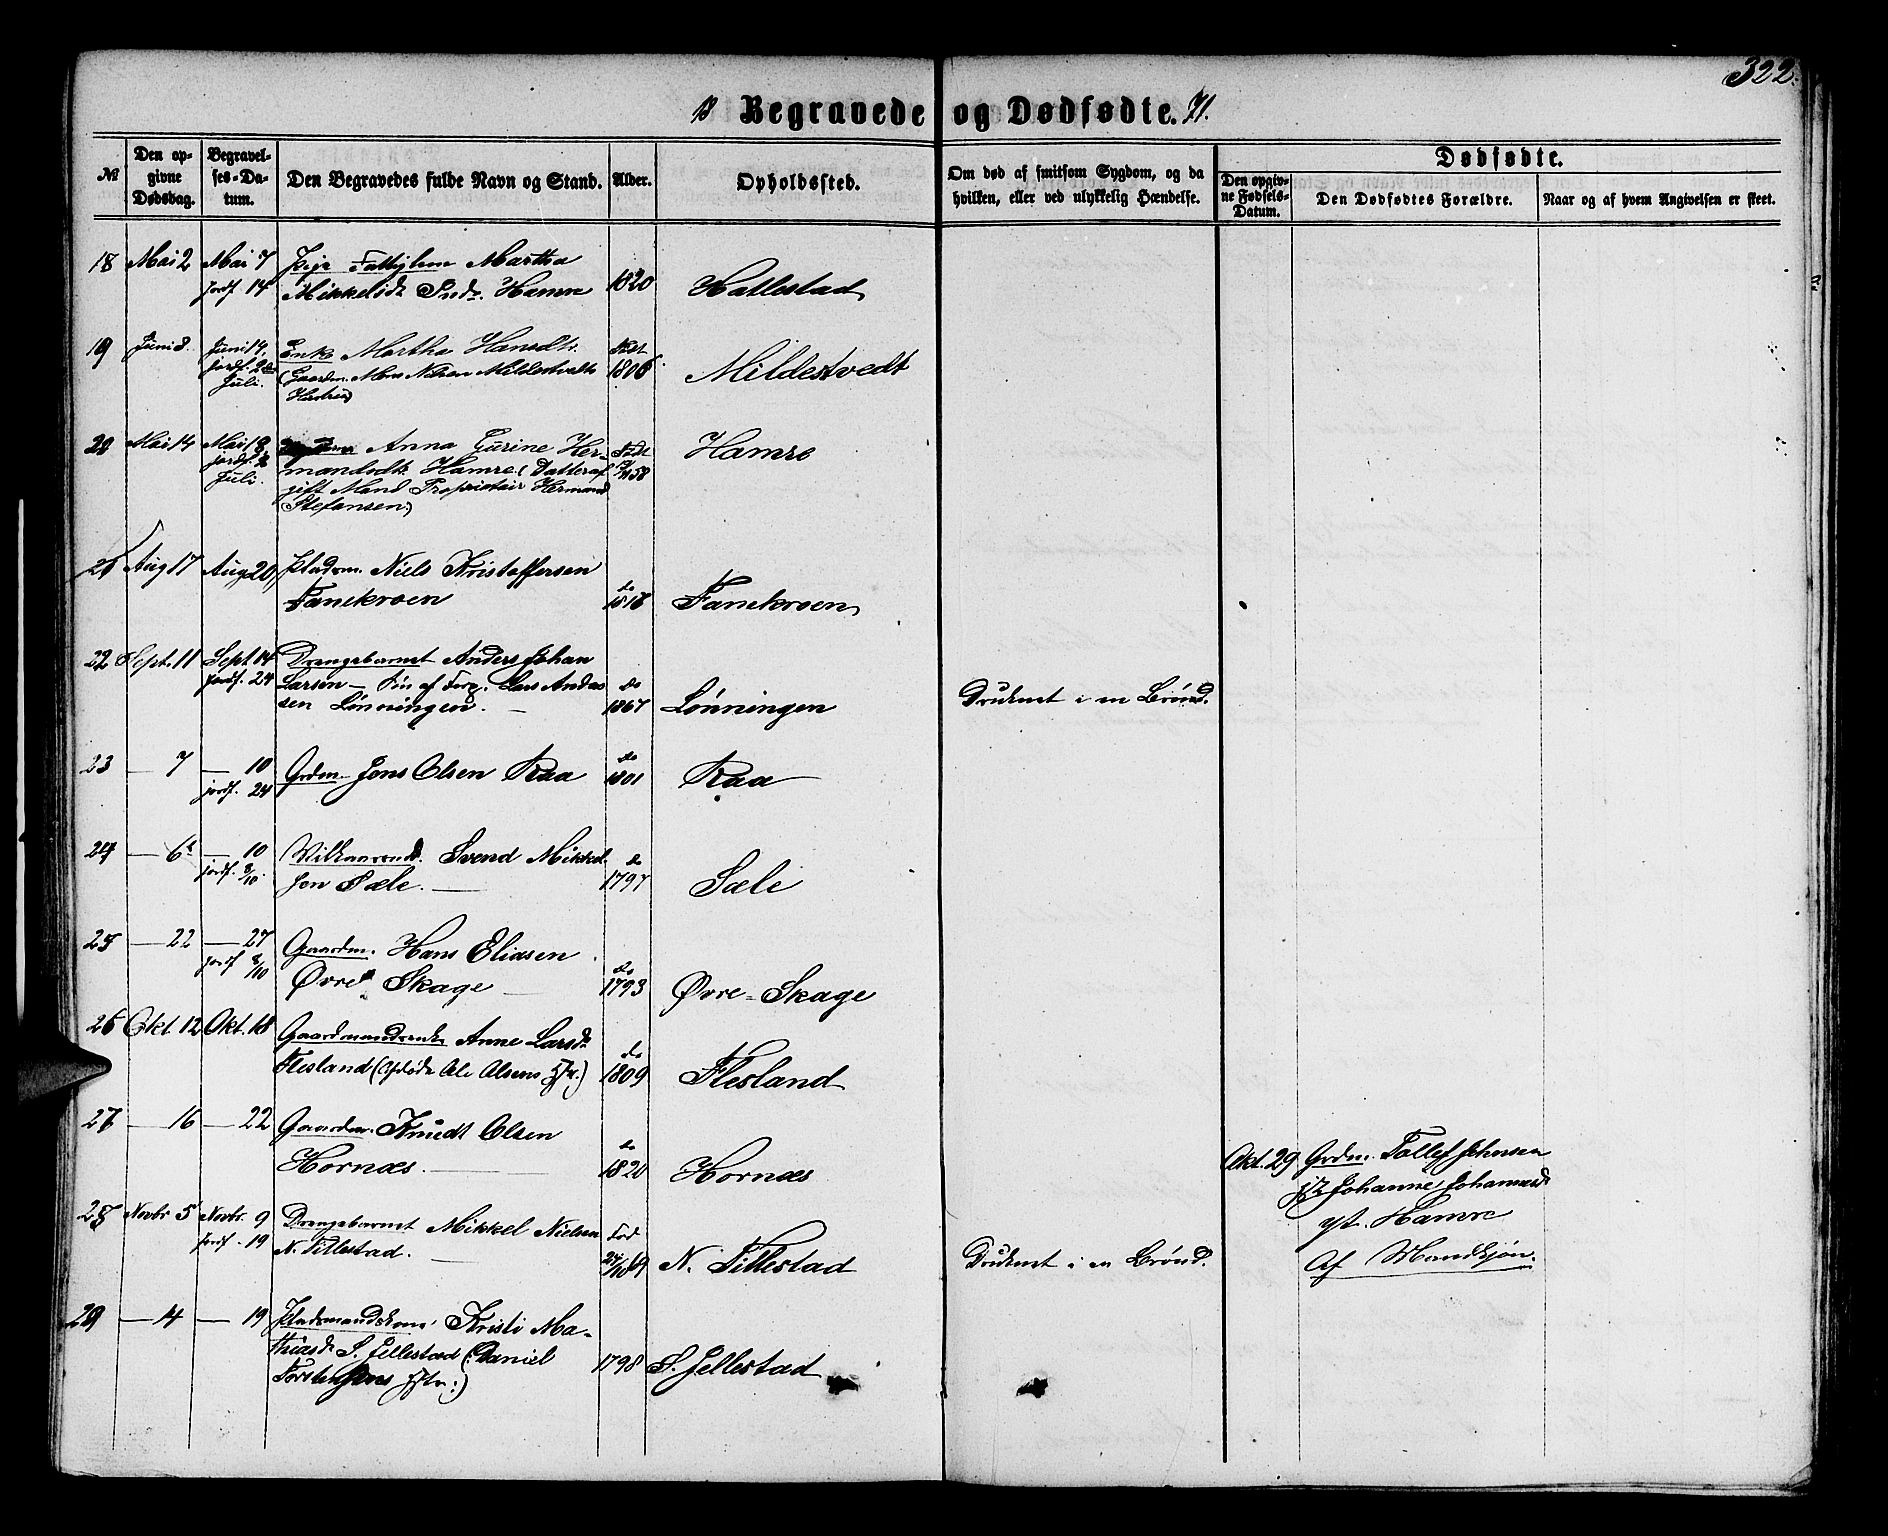 322.
18 Begravede og Dødfødte. 71.
№
Den opgivne Dødsdag.
Begravelses-Datum.
Den Begravedes fulde Navn og Stand.
Alder.
Opholdssted.
Om død af smitsom Sygdom, og da hvilken, eller ved ulykkelig Hændelse.
Dødfødte.
Den opgivne Fødsels-Datum.
Den Dødfødtes Forældre.
Naar og af hvem Angivelsen er skeet.
18 Mai 2 Mai 7 Pige Martha
jordf. 14 Hamre 1820 Hatlestad
19 Juni 14. Enke Martha Hansdtr. Født
jordf. 2 Juli. (Gaardm. Mons Nilsen Mildestvedts 1806 Mildestvedt
20 Mai 14 Mai 18 Anna Gurine Her- Født Hamre
jordf. 2 mandsdtr. Hamre (Datter af 58
Juli. gift Mand Proprietair Hermand
Stefansen)
21 Aug 17 Aug 20, Pladsm. Niels Kristoffersen
Fanekroen do 1818 Fanekroen
22 Sept. 11 Sept 14 Drengebarnet Anders Johan
jordf. 24 Larsen — Søn af Lars Anders
sen Lønningen. — do 1867 Lønningen Druknet i en Brønd.
23 — 7 — 10 Grdm. Jens Olsen Raa do 1801 Raa
jordf. 24
24 — 6 — 10 Vilkaarsmd. Svend Mikkel
jordf. 8/10. sen Sæle. — do 1797 Sæle
25 — 22 — 27 Gaardm. Hans Eliasen
jordf 8/10 Øvre Skage — do 1793 Øvre-Skage
26 Okt. 12 Okt. 18 Gaardmandsenke Anne Larsdr.
Flesland (Afdøde Ole Olsens Hstr.) do 1809 Flesland
27 — 16 — 22 Gaardm. Knudt Olsen
Hornæs. — do 1820 Hornæs
Okt. 29 Grdm. Tollef Johnsen
Johanne Johannesd.
gt. Hamre
Af Mandkjøn.
28 Novbr 5 Novbr. 9 Drengebarnet Mikkel Nielsen Fød
jordf. 19 N. Titlestad. — N. Titlestad Druknet i en Brønd.
29 — 4 — 19 Pladsmandskone Kristi Ma-
thiasdr. S. Jellestad (Daniel 1798 S. Jellestad
Torstensens Hstr.)